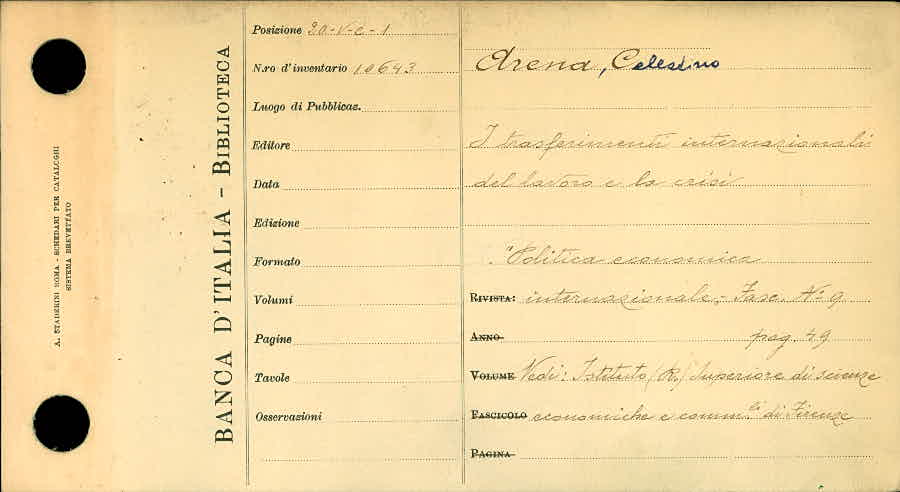 A. STADERINI ROMA - SCHEDARI PER CATALOGHI
SISTEMA BREVETTATO
BANCA D'ITALIA - BIBLIOTECA
Posizione 20-V-C-1
N.ro d'inventario 10643
Luogo di Pubblicaz.
Editore
Data
Edizione
Formato
Volumi
Pagine
Tavole
Osservazioni
Arena, Celestino
I trasferimenti internazionali
del lavoro e la crisi
"Politica economica
RIVISTA: internazionale, Fasc. N° 9
ANNO pag. 49
VOLUME Vedi: Istituto (R.) Superiore di scienze
FASCICOLO economiche e comm.li di Firenze
PAGINA